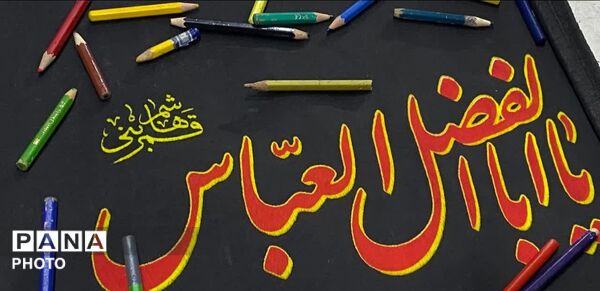 یا اباالفضل العبّاس
قمر بنی
هاشم
PANA
PHOTO